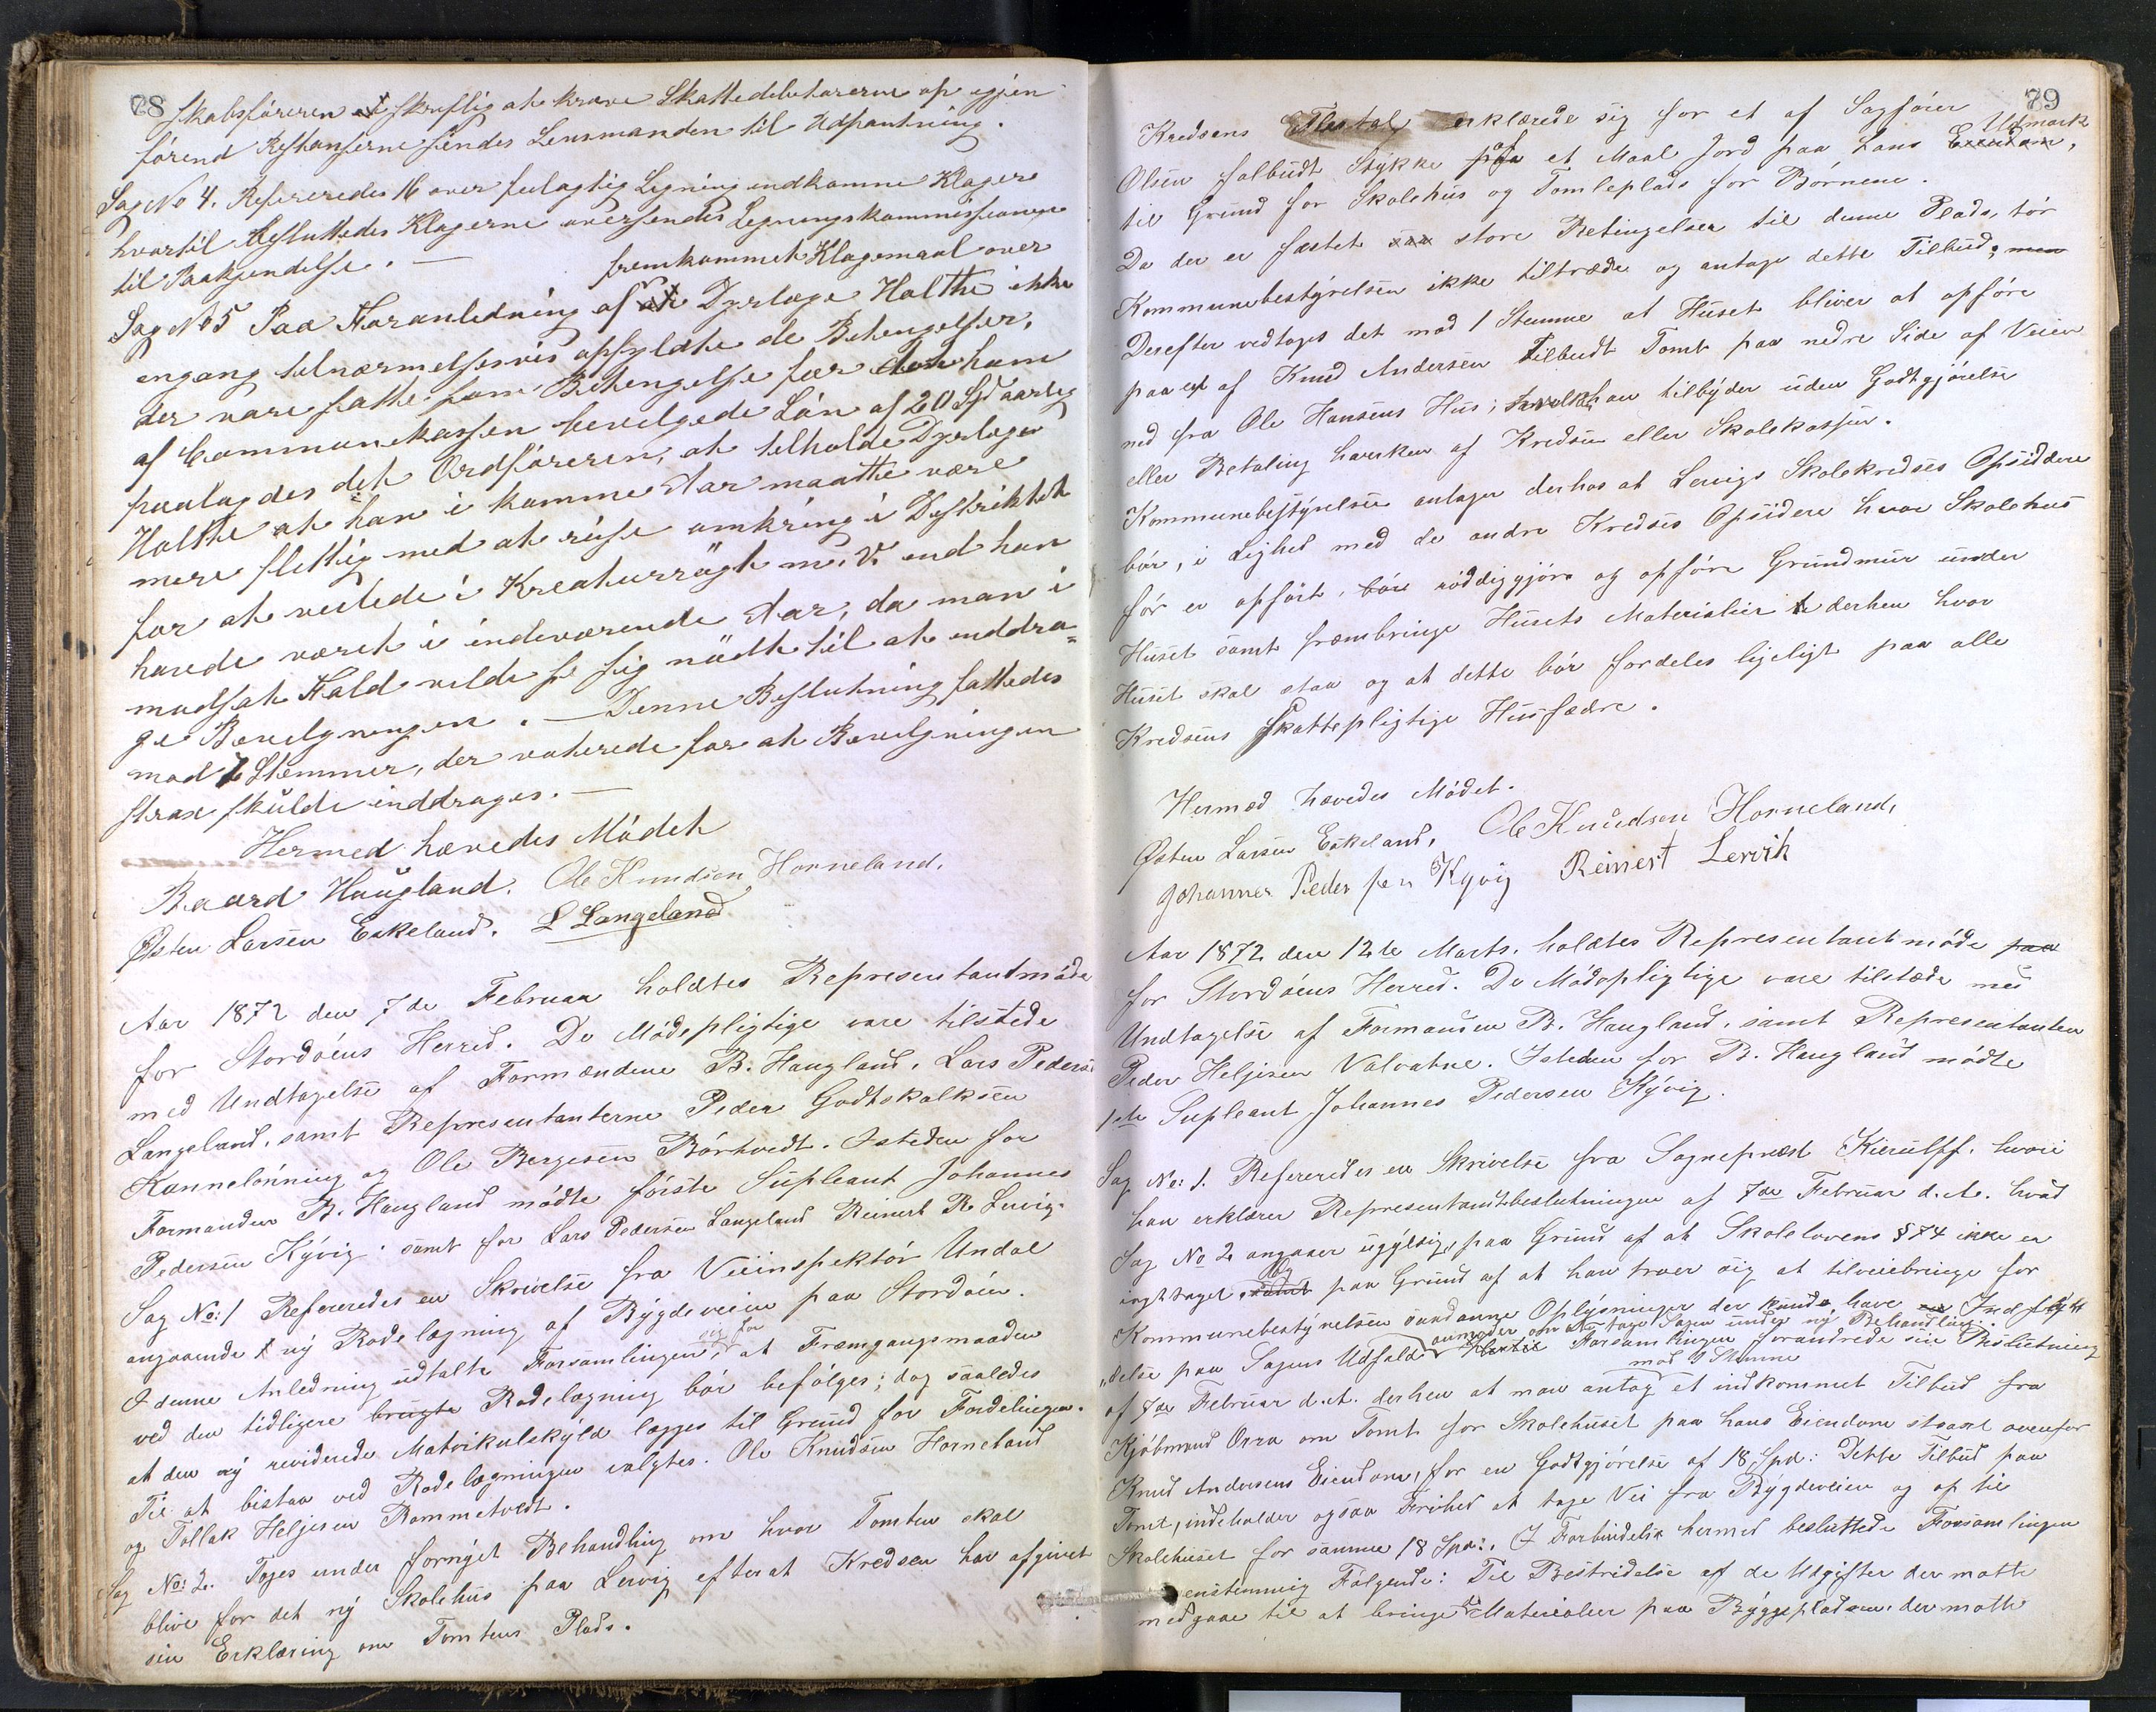 78
skabsføreren at skriftlig at kræve Skattedebitorerne op igjen
førend Restanserne sendes Lensmanden til Udpantning.
Sag No 4. Refereredes 16 over feilagtig Ligning indkomne Klager
hvortil besluttedes Klagerne oversendes Ligningskommissionen
til Paakjendelse. —
fremkommet Klagemaal over
Sag No 5 Paa Foranledning af at Dyrlæge Holthe ikke
engang tilnærmelsesvis opfyldte de Betingelser,
der vare satte som Betingelse for den ham
af Communekassen bevilgede Lön af 20 Spd aarlig
paalagdes det Ordføreren, at tilholde Dyrlæge
Holthe at han i komme Aar maatte være
mere flittig med at reise omkring i Distriktet
for at veilede i Kreaturrögt m.V. end han
havde været i indeværende Aar, da man i
modsat Fald vilde se sig nödt til at inddra=
ge Bevilgningen. — Denne Beslutning fattedes
mod 2 Stemmer, der voterede for at Bevilgningen
strax skulde inddrages. —
Hermed hævedes Mödet
Baard Haugland. Ole Knudsen Horneland.
Østen Larsen Eskeland. L Langeland
Aar 1872 den 7de Februar holdtes Representantmöde
for Stordöens Herred. De Mödepligtige vare tilstede
med Undtagelse af Formændene B. Haugland, Lars Peders.
Langeland, samt Representanterne Peder Godtskalksen
Kannelönning og Ole Bergesen Börtvedt. Isteden for
Formanden B. Haugland mödte förste Supleant Johannes
Pedersen Kÿvig, samt for Lars Pedersen Langeland Reinert R. Lervig.
Sag No: 1 Refereredes en Skrivelse fra Veiinspektör Undal
angaaende ny Rodelægning af Bygdeveien paa Stordöen.
I denne Anledning udtalte Forsamlingen sig for at Fremgangsmaaden
ved den tidligere brugte Rodelægning bör befölges; dog saaledes
at den ny reviderede Matrikulskyld lægges til Grund for Fordelingen.
Til at bistaa ved Rodelægningen valgtes. Ole Knudsen Horneland
og Tollak Heljesen Rommetvedt.
Sag No: 2. Toges under fornyet Behandling om hvor Tomten skal
blive for det ny Skolehus paa Lervig efterat Kredsen har afgivet
sin Erklæring om Tomtens Plads.
79
Kredsens Flertal erklærede sig for et af Sagförer
Olsen falbudt Stykke paa et Maal Jord paa hans Eiendom, Udmark
til Grund for Skolehus og Tomleplads for Börnene.
Da der er fæstet saa store Betingelser til denne Plads, tör
Kommunebestyrelsen ikke tiltræde og antage dette Tilbud; men
Derefter vedtoges det mod 1 Stemme at Huset bliver at opföre
paa et af Knud Andersen tilbudt Tomt paa nedre Side af Veien
ned fra Ole Hansens Hus; hvilket han tilbyder uden Godtgjörelse
eller Betaling hverken af Kredsen eller Skolekassen.
Kommunebestyrelsen antager derhos at Lervigs Skolekredses Opsiddere
bör, i Lighed med de andre Kredses Opsidere hvor Skolehus
för er opfört, bör röddiggjöre og opföre Grundmur under
Huset samt frembringe Husets Materialier derhen hvor
Huset skal staa og at dette bör fordeles ligeligt paa alle
Kredsens skattepligtige Husfædre.
Hermed hævedes Mödet.
Østen Larsen Eskeland, Ole Knudsen Horneland,
Johannes Pedersen Kyvig Reinert Lervik
Aar 1872 den 12te Marts. holdtes Representantmöde paa
for Stordöens Herred. De Mödepligtige vare tilstæde med
Undtagelse af Formanden B. Haugland, samt Representanten
Peder Heljesen Valvatne. Isteden for B. Haugland mödte
1ste Supleant Johannes Pedersen Kÿvig.
Sag No: 1. Refereredes en Skrivelse fra Sognepræst Kierulff. hvori
han erklærer Representantbeslutningen af 7de Februar d. A. hvad
Sag No 2 angaaer ugyldig, paa Grund af at Skolelovens § 74 ikke er
iagttaget, samt og paa Grund af at han troer sig at tilveiebringe for
Kommunebestyrelsen saadanne Oplysninger der kunde have Indfly
„delse paa Sagens Udfald anmoder om at tage Sagen under ny Behandling.
Hertil Forsamlingen forandrede sin Beslutning
af 7de Februar d. A. derhen at man antog mod 1 Stemme et indkommet Tilbud fra
Kjöbmand Orra om Tomt for Skolehuset paa hans Eiendom straxt ovenfor
Knud Andersens Eiendom, for en Godtgjörelse af 18 Spd: Dette Tilbud paa
Tomt, indeholder ogsaa Frihed at tage Vei fra Bygdeveien og op til
Skolehuset for samme 18 Spd:. I Forbindelse hermed besluttede Forsamlingen
enstemmig Fölgende: Til Bestridelse af de Udgifter der matte
medgaae til at bringe de Materialier paa Byggepladsen, der matte